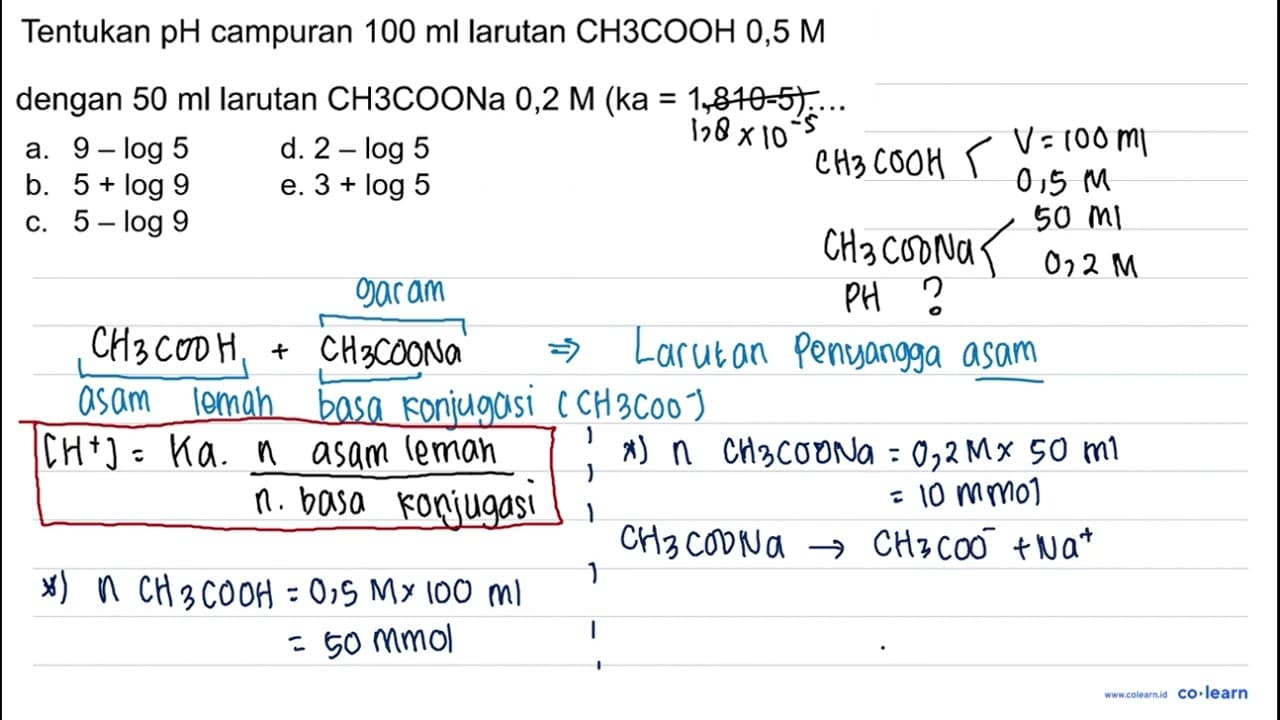 Tentukan pH campuran 100 ml larutan CH3COOH 0,5 M
dengan 50 ml larutan CH3COONa 0,2 M (ka = 1,810-5)....
1,8 x 10⁻⁵
a. 9 – log 5
d. 2 – log 5
b. 5 + log 9
e. 3 + log 5
c. 5 – log 9
CH3COOH
V = 100 ml
0,5 M
CH3COONa
50 ml
0,2 M
PH ?
garam
CH3COOH + CH3COONa ⇒ Larutan Penyangga asam
asam lemah basa konjugasi (CH3COO⁻)
[H⁺] = Ka. n asam lemah
n. basa konjugasi
*) n CH3COONa = 0,2 M x 50 ml
= 10 mmol
CH3COONa → CH3COO⁻ + Na⁺
*) n CH3COOH = 0,5 M x 100 ml
= 50 mmol
www.colearn.id co·learn